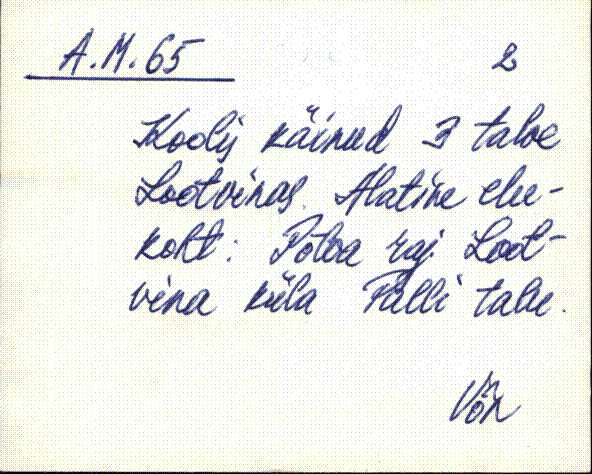 A.M. 65 2
Koolij käinud 3 talve
Lootvinas. Alatine elu-
koht: Põlva raj. Loot-
vina küla Palli talu.
Võn